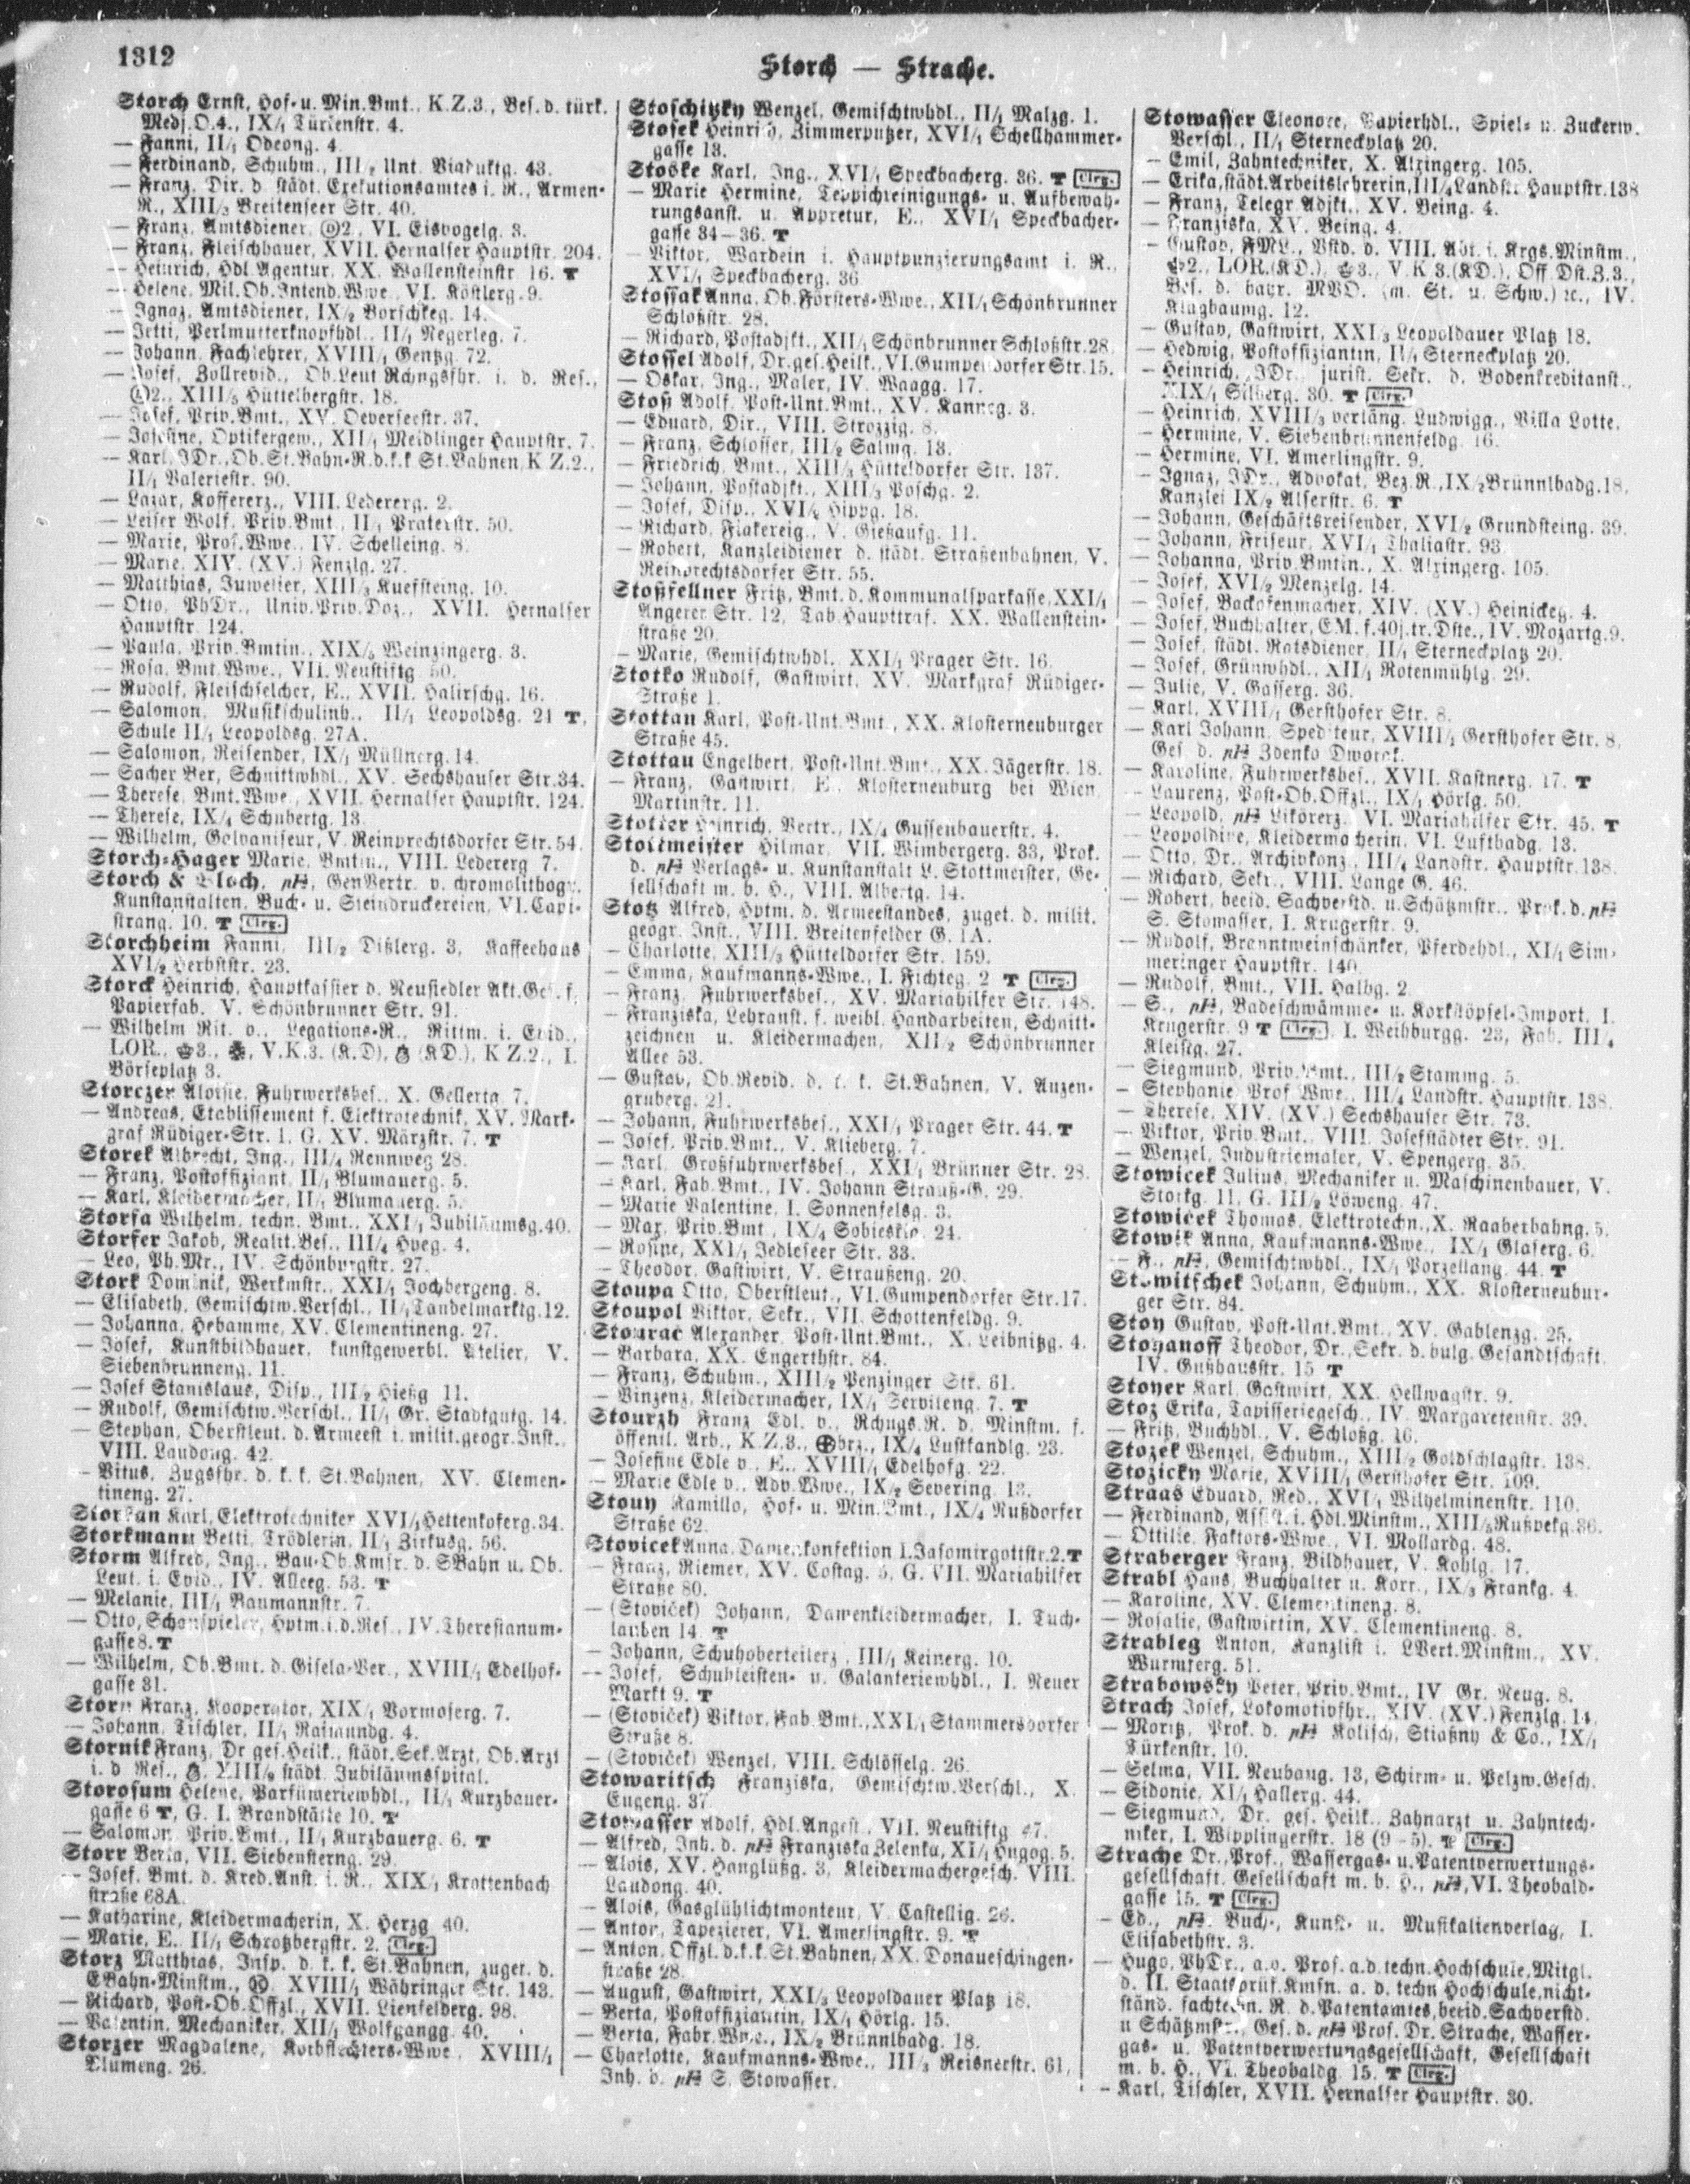 1312
Storch — Strache.
Storch Ernst, Hof- u. Min.Bmt., K.Z.3., Bes. d. türk.
Medj.O.4., IX/1 Türkenstr. 4.
— Fanni, II/1 Odeong. 4.
— Ferdinand, Schuhm., III/2 Unt. Viaduktg. 43.
— Franz, Dir. d. städt. Exekutionsamtes i. R., Armen-
R., XIII/3 Breitenseer Str. 40.
— Franz, Amtsdiener, 2., VI. Eisvogelg. 3.
— Franz, Fleischhauer, XVII. Hernalser Hauptstr. 204.
— Heinrich, Hdl.Agentur, XX. Wallensteinstr. 16. T
— Helene, Mil.Ob.Intend.Wwe., VI. Köstlerg. 9.
— Ignaz, Amtsdiener, IX/2 Borschkeg. 14.
— Jetti, Perlmutterknopfhdl., II/1 Negerleg. 7.
— Johann, Fachlehrer, XVIII/1 Gentzg. 72.
— Josef, Zollrevid., Ob.Leut.Rchngsfhr. i. d. Res.,
2., XIII/3 Hüttelbergstr. 18.
— Josef, Priv.Bmt., XV. Oeverseestr. 37.
— Josefine, Optikergew., XII/1 Meidlinger Hauptstr. 7.
— Karl, JDr., Ob.St.Bahn-R.d.k.k.St.Bahnen, K.Z.2.,
II/1 Valeriestr. 90.
— Lazar, Koffererz., VIII. Ledererg. 2.
— Leiser Wolf, Priv.Bmt., II/1 Praterstr. 50.
— Marie, Prof.Wwe., IV. Schelleing. 8.
— Marie, XIV. (XV.) Fenzlg. 27.
— Matthias, Juwelier, XIII/3 Kuefsteing. 10.
— Otto, PhDr., Univ.Priv.Doz., XVII. Hernalser
Hauptstr. 124.
— Paula, Priv.Bmtin., XIX/5 Weinzingerg. 3.
— Rosa, Bmt.Wwe., VII. Neustiftg. 50.
— Rudolf, Fleischselcher, E., XVII. Halirschg. 16.
— Salomon, Musikschulinh., II/1 Leopoldsg. 21 T,
Schule II/1 Leopoldsg. 27A.
— Salomon, Reisender, IX/1 Müllnerg. 14.
— Sacher Ber, Schnittwhdl., XV. Sechshauser Str. 34.
— Therese, Bmt.Wwe., XVII. Hernalser Hauptstr. 124.
— Therese, IX/4 Schubertg. 13.
— Wilhelm, Galvaniseur, V. Reinprechtsdorfer Str. 54.
Storch-Hager Marie, Bmtin., VIII. Ledererg. 7.
Storch & Bloch, pH, GenVertr. v. chromolithogr.
Kunstanstalten, Buch- u. Steindruckereien, VI. Capi-
strang. 10. T Clrg.
Storchheim Fanni, III/2 Dißlerg. 3, Kaffeehaus
XVI/2 Herbststr. 23.
Storck Heinrich, Hauptkassier d. Neusiedler Akt.Ges. f.
Papierfab., V. Schönbrunner Str. 91.
— Wilhelm Rit. v., Legations-R., Rittm. i. Evid.,
LOR., 3., V.K.3. (K.D), (KD.), K.Z.2., I.
Börseplatz 3.
Storczer Aloisie, Fuhrwerksbes., X. Gellertg. 7.
— Andreas, Etablissement f. Elektrotechnik, XV. Mark-
graf Rüdiger-Str. 1, G. XV. Märzstr. 7. T
Storek Albrecht, Ing., III/4 Rennweg 28.
— Franz, Postoffiziant, II/1 Blumauerg. 5.
— Karl, Kleidermacher, II/1 Blumauerg. 5.
Storfa Wilhelm, techn. Bmt., XXI/1 Jubiläumsg. 40.
Storfer Jakob, Realit.Bes., III/4 Hyeg. 4.
— Leo, Ph.Mr., IV. Schönburgstr. 27.
Stork Dominik, Werkmstr., XXI/1 Jochbergeng. 8.
— Elisabeth, Gemischtw.Verschl., II/1 Tandelmarktg. 12.
— Johanna, Hebamme, XV. Clementineng. 27.
— Josef, Kunstbildhauer, kunstgewerbl. Atelier, V.
Siebenbrunneng. 11.
— Josef Stanislaus, Disp., III/2 Hießg. 11.
— Rudolf, Gemischtw.Verschl., II/1 Gr. Stadtgutg. 14.
— Stephan, Oberstleut. d. Armeest. i. milit.geogr.Inst.,
VIII. Laudong. 42.
— Vitus, Zugsfhr. d. k. k. St.Bahnen, XV. Clemen-
tineng. 27.
Karl, Elektrotechniker, XVI/1 Hettenkoferg. 34.
Storkmann Betti, Trödlerin, II/1 Zirkusg. 56.
Storm Alfred, Ing., Bau-Ob.Kmsr. d. SBahn u. Ob.
Leut. i. Evid., IV. Alleeg. 53. T
— Melanie, III/1 Baumannstr. 7.
— Otto, Schauspieler, Hptm.i.d.Res., IV. Theresianum-
gasse 8. T
— Wilhelm, Ob.Bmt. d. Gisela-Ver., XVIII/1 Edelhof-
gasse 31.
Storn Franz, Kooperator, XIX/1 Vormoserg. 7.
— Johann, Tischler, II/1 Raimundg. 4.
Stornik Franz, Dr.ges.Heilk., städt.Sek.Arzt, Ob.Arzt
i. d. Res., XIII/9 städt. Jubiläumsspital.
Storosum Helene, Parfümeriewhdl., II/1 Kurzbauer-
gasse 6 T, G. I. Brandstätte 10. T
— Salomon, Priv.Bmt., II/1 Kurzbauerg. 6. T
Storr Berta, VII. Siebensterng. 29.
— Josef, Bmt. d. Kred.Anst. i. R., XIX/1 Krottenbach
straße 68A.
— Katharine, Kleidermacherin, X. Herzg. 40.
— Marie, E., II/1 Schrotzbergstr. 2. Clrg.
Storz Matthias, Insp. d. k. k. St.Bahnen, zuget. d.
EBahn-Minstm., XVIII/1 Währinger Str. 143.
— Richard, Post-Ob.Offzl., XVII. Lienfelderg. 98.
— Valentin, Mechaniker, XII/1 Wolfgangg. 40.
Storzer Magdalene, Korbflechters-Wwe., XVIII/1
Blumeng. 26.
Stoschitzky Wenzel, Gemischtwhdl., II/1 Malzg. 1.
Stosek Heinrich, Zimmerputzer, XVI/1 Schellhammer-
gasse 13.
Stoske Karl, Ing., XVI/1 Speckbacherg. 36. T Clrg.
— Marie Hermine, Teppichreinigungs- u. Aufbewah-
rungsanst. u. Appretur, E., XVI/1 Speckbacher-
gasse 34—36. T
— Viktor, Wardein i. Hauptpunzierungsamt i. R.,
XVI/1 Speckbacherg. 36
Stossak Anna, Ob.Försters-Wwe., XII/1 Schönbrunner
Schloßstr. 28.
— Richard, Postadjkt., XII/1 Schönbrunner Schloßstr. 28.
Stossel Adolf, Dr.ges.Heilk., VI. Gumpendorfer Str. 15.
— Oskar, Ing., Maler, IV. Waagg. 17.
Stoß Adolf, Post-Unt.Bmt., XV. Kanneg. 3.
— Eduard, Dir., VIII. Strozzig. 8.
— Franz, Schlosser, III/2 Salmg. 13.
— Friedrich, Bmt., XIII/3 Hütteldorfer Str. 137.
— Johann, Postadjkt., XIII/3 Poschg. 2.
— Josef, Disp., XVI/2 Hippg. 18.
— Richard, Fiakereig., V. Gießaufg. 11.
— Robert, Kanzleidiener d. städt. Straßenbahnen, V.
Reinprechtsdorfer Str. 55.
Stoßfellner Fritz, Bmt. d. Kommunalsparkasse, XXI/1
Angerer Str. 12, Tab.Haupttraf. XX. Wallenstein-
straße 20.
— Marie, Gemischtwhdl., XXI/1 Prager Str. 16.
Stotko Rudolf, Gastwirt, XV. Markgraf Rüdiger-
Straße 1.
Stottan Karl, Post-Unt.Bmt., XX. Klosterneuburger
Straße 45.
Stottau Engelbert, Post-Unt.Bmt., XX. Jägerstr. 18.
— Franz, Gastwirt, E., Klosterneuburg bei Wien,
Martinstr. 11.
Stotter Heinrich, Vertr., IX/4 Gussenbauerstr. 4.
Stottmeister Hilmar, VII. Wimbergerg. 33, Prok.
d. pH Verlags- u. Kunstanstalt L. Stottmeister, Ge-
sellschaft m. b. H., VIII. Albertg. 14.
Stotz Alfred, Hptm. d. Armeestandes, zuget. d. milit.
geogr. Inst., VIII. Breitenfelder G. 1A.
— Charlotte, XIII/3 Hütteldorfer Str. 159.
— Emma, Kaufmanns-Wwe., I. Fichteg. 2 T Clrg.
— Franz, Fuhrwerksbes., XV. Mariahilfer Str. 148.
— Franziska, Lehranst. f. weibl. Handarbeiten, Schnitt-
zeichnen u. Kleidermachen, XII/2 Schönbrunner
Allee 53.
— Gustav, Ob.Revid. d. k. k. St.Bahnen, V. Anzen-
gruberg. 21.
— Johann, Fuhrwerksbes., XXI/1 Prager Str. 44. T
— Josef, Priv.Bmt., V. Klieberg. 7.
— Karl, Großfuhrwerksbes., XXI/1 Brünner Str. 28.
— Karl, Fab.Bmt., IV. Johann Strauß-G. 29.
— Marie Valentine, I. Sonnenfelsg. 3.
— Max, Priv.Bmt., IX/4 Sobieskig. 24.
— Rosine, XXI/1 Jedleseer Str. 33.
— Theodor, Gastwirt, V. Straußeng. 20.
Stoupa Otto, Oberstleut., VI. Gumpendorfer Str. 17.
Stoupol Viktor, Sekr., VII. Schottenfeldg. 9.
Stourac Alexander, Post-Unt.Bmt., X. Leibnitzg. 4.
— Barbara, XX. Engerthstr. 84.
— Franz, Schuhm., XIII/2 Penzinger Str. 61.
— Vinzenz, Kleidermacher, IX/1 Serviteng. 7. T
Stourzh Franz Edl. v., Rchngs.R. d. Minstm. f.
öffentl. Arb., K.Z.3., brz., IX/4 Lustkandlg. 23.
— Josefine Edle v., E., XVIII/1 Edelhofg. 22.
— Marie Edle v., Adv.Wwe., IX/2 Severing. 13.
Stouy Kamillo, Hof- u. Min.Bmt., IX/4 Nußdorfer
Straße 62.
Stovicek Anna, Damenkonfektion, I. Jasomirgottstr. 2. T
— Franz, Riemer, XV. Costag. 5, G. VII. Mariahilfer
Straße 80.
— (Stoviček) Johann, Damenkleidermacher, I. Tuch-
lauben 14. T
— Johann, Schuhoberteilerz., III/1 Keinerg. 10.
— Josef, Schuhleisten- u. Galanteriewhdl., I. Neuer
Markt 9. T
— (Stoviček) Viktor, Fab.Bmt., XXI/1 Stammersdorfer
Straße 8.
— (Stoviček) Wenzel, VIII. Schlösselg. 26.
Stowaritsch Franziska, Gemischtw.Verschl., X.
Eugeng. 37.
Stowasser Adolf, Hdl.Angest., VII. Neustiftg. 47.
— Alfred, Inh. d. pH Franziska Zelenka, XI/1 Hugog. 5.
— Alois, XV. Hanglüßg. 3, Kleidermachergesch. VIII.
Laudong. 40.
— Alois, Gasglühlichtmonteur, V. Castellig. 26.
— Anton, Tapezierer, VI. Amerlingstr. 9. T
— Anton, Offzl.d.k.k.St.Bahnen, XX. Donaueschingen-
straße 28.
— August, Gastwirt, XXI/3 Leopoldauer Platz 18.
— Berta, Postoffiziantin, IX/1 Hörlg. 15.
— Berta, Fabr.Wwe., IX/2 Brünnlbadg. 18.
— Charlotte, Kaufmanns-Wwe., III/3 Reisnerstr. 61,
Inh. d. pH S. Stowasser.
Stowasser Eleonore, Papierhdl., Spiel- u. Zuckerw.
Verschl., II/1 Sterneckplatz 20.
— Emil, Zahntechniker, X. Alxingerg. 105.
— Erika, städt.Arbeitslehrerin, III/4 Landstr. Hauptstr. 138
— Franz, Telegr.Adjkt., XV. Being. 4.
— Franziska, XV. Being. 4.
— Gustav, FML., Vstd. d. VIII. Abt. i. Krgs.Minstm.,
2., LOR.(KD.), 3., V.K.3.(KD.), Off.Dst.Z.3.,
Bes. d. bayr. MVO. (m. St. u. Schw.) ꝛc., IV.
Klagbaumg. 12.
— Gustav, Gastwirt, XXI/3 Leopoldauer Platz 18.
— Hedwig, Postoffiziantin, II/1 Sterneckplatz 20.
— Heinrich, JDr., jurist. Sekr. d. Bodenkreditanst.,
XIX/1 Silberg. 30. T Clrg.
— Heinrich, XVIII/3 verläng. Ludwigg., Villa Lotte.
— Hermine, V. Siebenbrunnenfeldg. 16.
— Hermine, VI. Amerlingstr. 9.
— Ignaz, JDr., Advokat, Bez.R., IX/2 Brünnlbadg. 18,
Kanzlei IX/2 Alserstr. 6. T
— Johann, Geschäftsreisender, XVI/2 Grundsteing. 39.
— Johann, Friseur, XVI/1 Thaliastr. 93.
— Johanna, Priv.Bmtin., X. Alxingerg. 105.
— Josef, XVI/2 Menzelg. 14.
— Josef, Backofenmacher, XIV. (XV.) Heinickeg. 4.
— Josef, Buchhalter, EM. f.40j.tr.Dste., IV. Mozartg. 9.
— Josef, städt. Ratsdiener, II/1 Sterneckplatz 20.
— Josef, Grünwhdl., XII/1 Rotenmühlg. 29.
— Julie, V. Gasserg. 36.
— Karl, XVIII/1 Gersthofer Str. 8.
— Karl Johann, Spediteur, XVIII/1 Gersthofer Str. 8,
Ges. d. pH Zdenko Dworak.
— Karoline, Fuhrwerksbes., XVII. Kastnerg. 17. T
— Laurenz, Post-Ob.Offzl., IX/1 Hörlg. 50.
— Leopold, pH Likörerz., VI. Mariahilfer Str. 45. T
— Leopoldine, Kleidermacherin, VI. Luftbadg. 13.
— Otto, Dr., Archivkonz., III/4 Landstr. Hauptstr. 138.
— Richard, Sekr., VIII. Lange G. 46.
— Robert, beeid. Sachverstd. u. Schätzmstr., Prok. d. pH
S. Stowasser, I. Krugerstr. 9.
— Rudolf, Branntweinschänker, Pferdehdl., XI/1 Sim-
meringer Hauptstr. 140.
— Rudolf, Bmt., VII. Halbg. 2.
— S., pH, Badeschwämme- u. Korkstöpsel-Import, I.
Krugerstr. 9 T Clrg., I. Weihburgg. 23, Fab. III/4
Kleistg. 27.
— Siegmund, Priv.Bmt., III/2 Stammg. 5.
— Stephanie, Prof.Wwe., III/4 Landstr. Hauptstr. 138.
— Therese, XIV. (XV.) Sechshauser Str. 73.
— Viktor, Priv.Bmt., VIII. Josefstädter Str. 91.
— Wenzel, Industriemaler, V. Spengerg. 35.
Stowicek Julius, Mechaniker u. Maschinenbauer, V.
Storkg. 11, G. III/2 Löweng. 47.
Stowiček Thomas, Elektrotechn., X. Raaberbahng. 5.
Stowik Anna, Kaufmanns-Wwe., IX/1 Glaserg. 6.
— F., pH, Gemischtwhdl., IX/1 Porzellang. 44. T
Stowitschek Johann, Schuhm., XX. Klosterneubur-
ger Str. 84.
Stoy Gustav, Post-Unt.Bmt., XV. Gablenzg. 25.
Stoyanoff Theodor, Dr., Sekr. d. bulg. Gesandtschaft,
IV. Gußhausstr. 15 T
Stoyer Karl, Gastwirt, XX. Hellwagstr. 9.
Stoz Erika, Tapisseriegesch., IV. Margaretenstr. 39.
— Fritz, Buchhdl., V. Schloßg. 16.
Stozek Wenzel, Schuhm., XIII/2 Goldschlagstr. 138.
Stozicky Marie, XVIII/1 Gersthofer Str. 109.
Straas Eduard, Red., XVI/1 Wilhelminenstr. 110.
— Ferdinand, Assist. i. Hdl.Minstm., XIII/5 Rußpekg. 36.
— Ottilie, Faktors-Wwe., VI. Mollardg. 48.
Straberger Franz, Bildhauer, V. Kohlg. 17.
Strabl Hans, Buchhalter u. Korr., IX/3 Frankg. 4.
— Karoline, XV. Clementineng. 8.
— Rosalie, Gastwirtin, XV. Clementineng. 8.
Strableg Anton, Kanzlist i. LVert.Minstm., XV.
Wurmserg. 51.
Strabowsky Peter, Priv.Bmt., IV. Gr. Neug. 8.
Strach Josef, Lokomotivfhr., XIV. (XV.) Fenzlg. 14.
— Moritz, Prok. d. pH Kolisch, Stiaßny & Co., IX/1
Türkenstr. 10.
— Selma, VII. Neubaug. 13, Schirm- u. Pelzw.Gesch.
— Sidonie, XI/1 Hallerg. 44.
— Siegmund, Dr. ges. Heilk., Zahnarzt u. Zahntech-
niker, I. Wipplingerstr. 18 (9—5). T Clrg.
Strache Dr., Prof., Wassergas- u. Patentverwertungs-
gesellschaft, Gesellschaft m. b. H., pH, VI. Theobald-
gasse 15. T Clrg.
— Ed., pH, Buch-, Kunst- u. Musikalienverlag, I.
Elisabethstr. 3.
— Hugo, PhDr., a.o. Prof. a.d.techn.Hochschule, Mitgl.
d. II. Staatsprüf.Kmsn. a. d. techn Hochschule, nicht-
ständ. fachtechn. R. d. Patentamtes, beeid. Sachverstd.
u. Schätzmstr., Ges. d. pH Prof. Dr. Strache, Wasser-
gas- u. Patentverwertungsgesellschaft, Gesellschaft
m. b. H., VI. Theobaldg. 15. T Clrg.
— Karl, Tischler, XVII. Hernalser Hauptstr. 30.